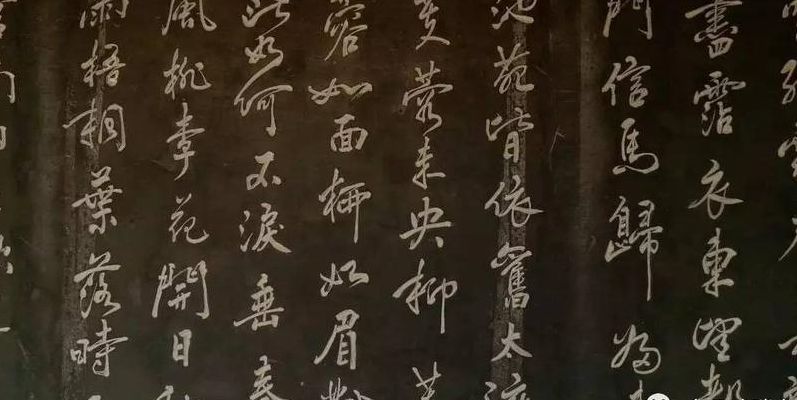 盡霑衣東望都
門信馬歸歸
池苑皆依舊太液
芙蓉未央柳芙
蓉如面柳如眉對
此如何不淚垂春
風桃李花開日秋
雨梧桐葉落時